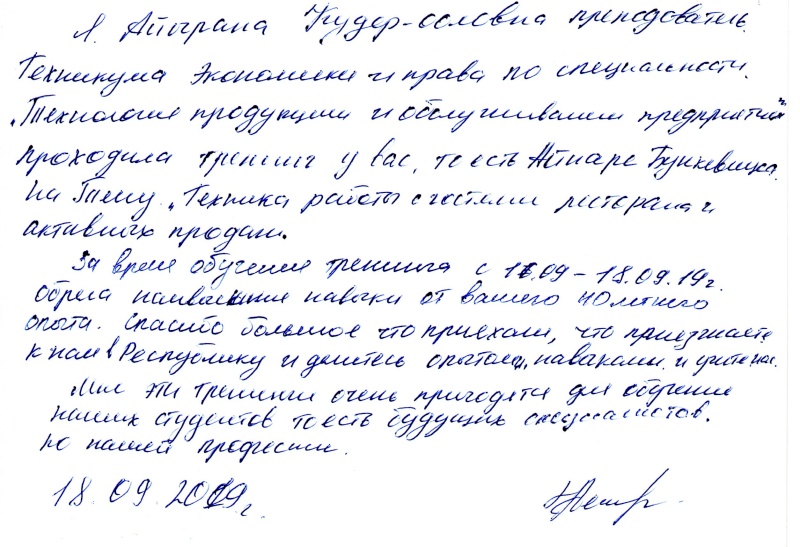 Я. Айырана Кудер-ословна преподователь
Техникума Экономики и права по специальности.
„Технология продукции и обслуживании предприятий"
проходила тренинг у вас, то есть Айнарс Бункевница.
На Тему „Техника работы с гостями ресторана и
активных продаж.
За время обучения тренинга с 16.09 – 18.09.19г.
обрела наивысшие навыки от вашего 40летнего
опыта. Спасибо большое что приехали, что приезжаете
к нам в Республику и делитесь опытом, навыками и учите нас.
Мне эти тренинги очень пригодятся для обучение
наших студентов то есть будущих специалистов.
по нашей профессии.
18.09.2019г.